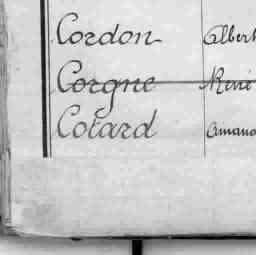 Cordon Albert
Corgne René
Cotard Amand